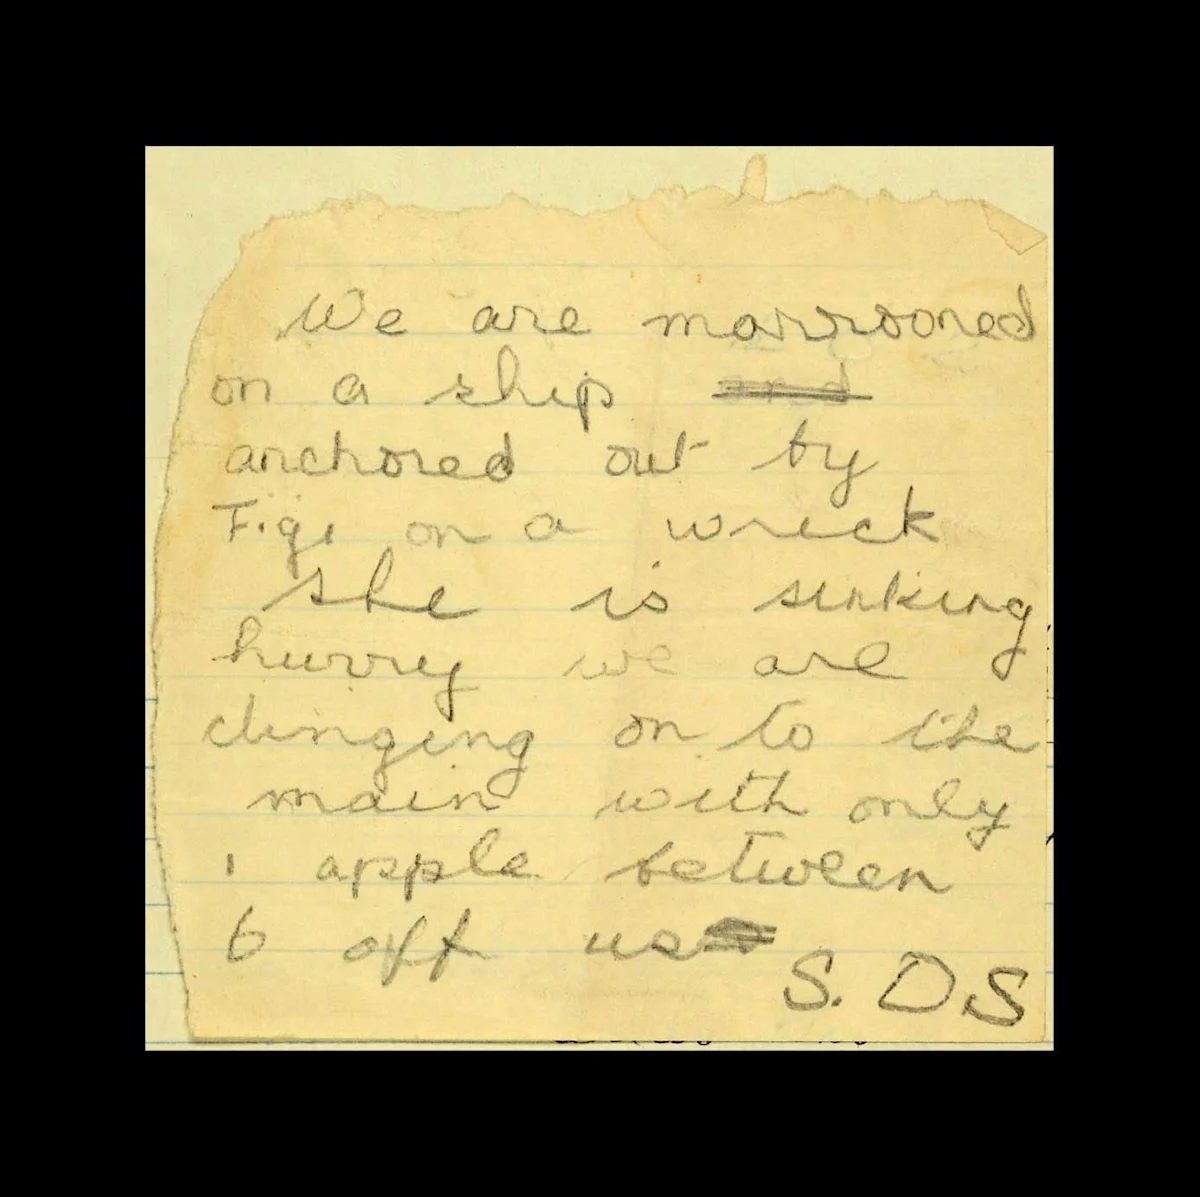 We are marrooned
on a ship and
anchored out by
Figi on a wreck
she is sinking
hurry we are
clinging on to the
main with only
1 apple between
6 off us
S.O.S